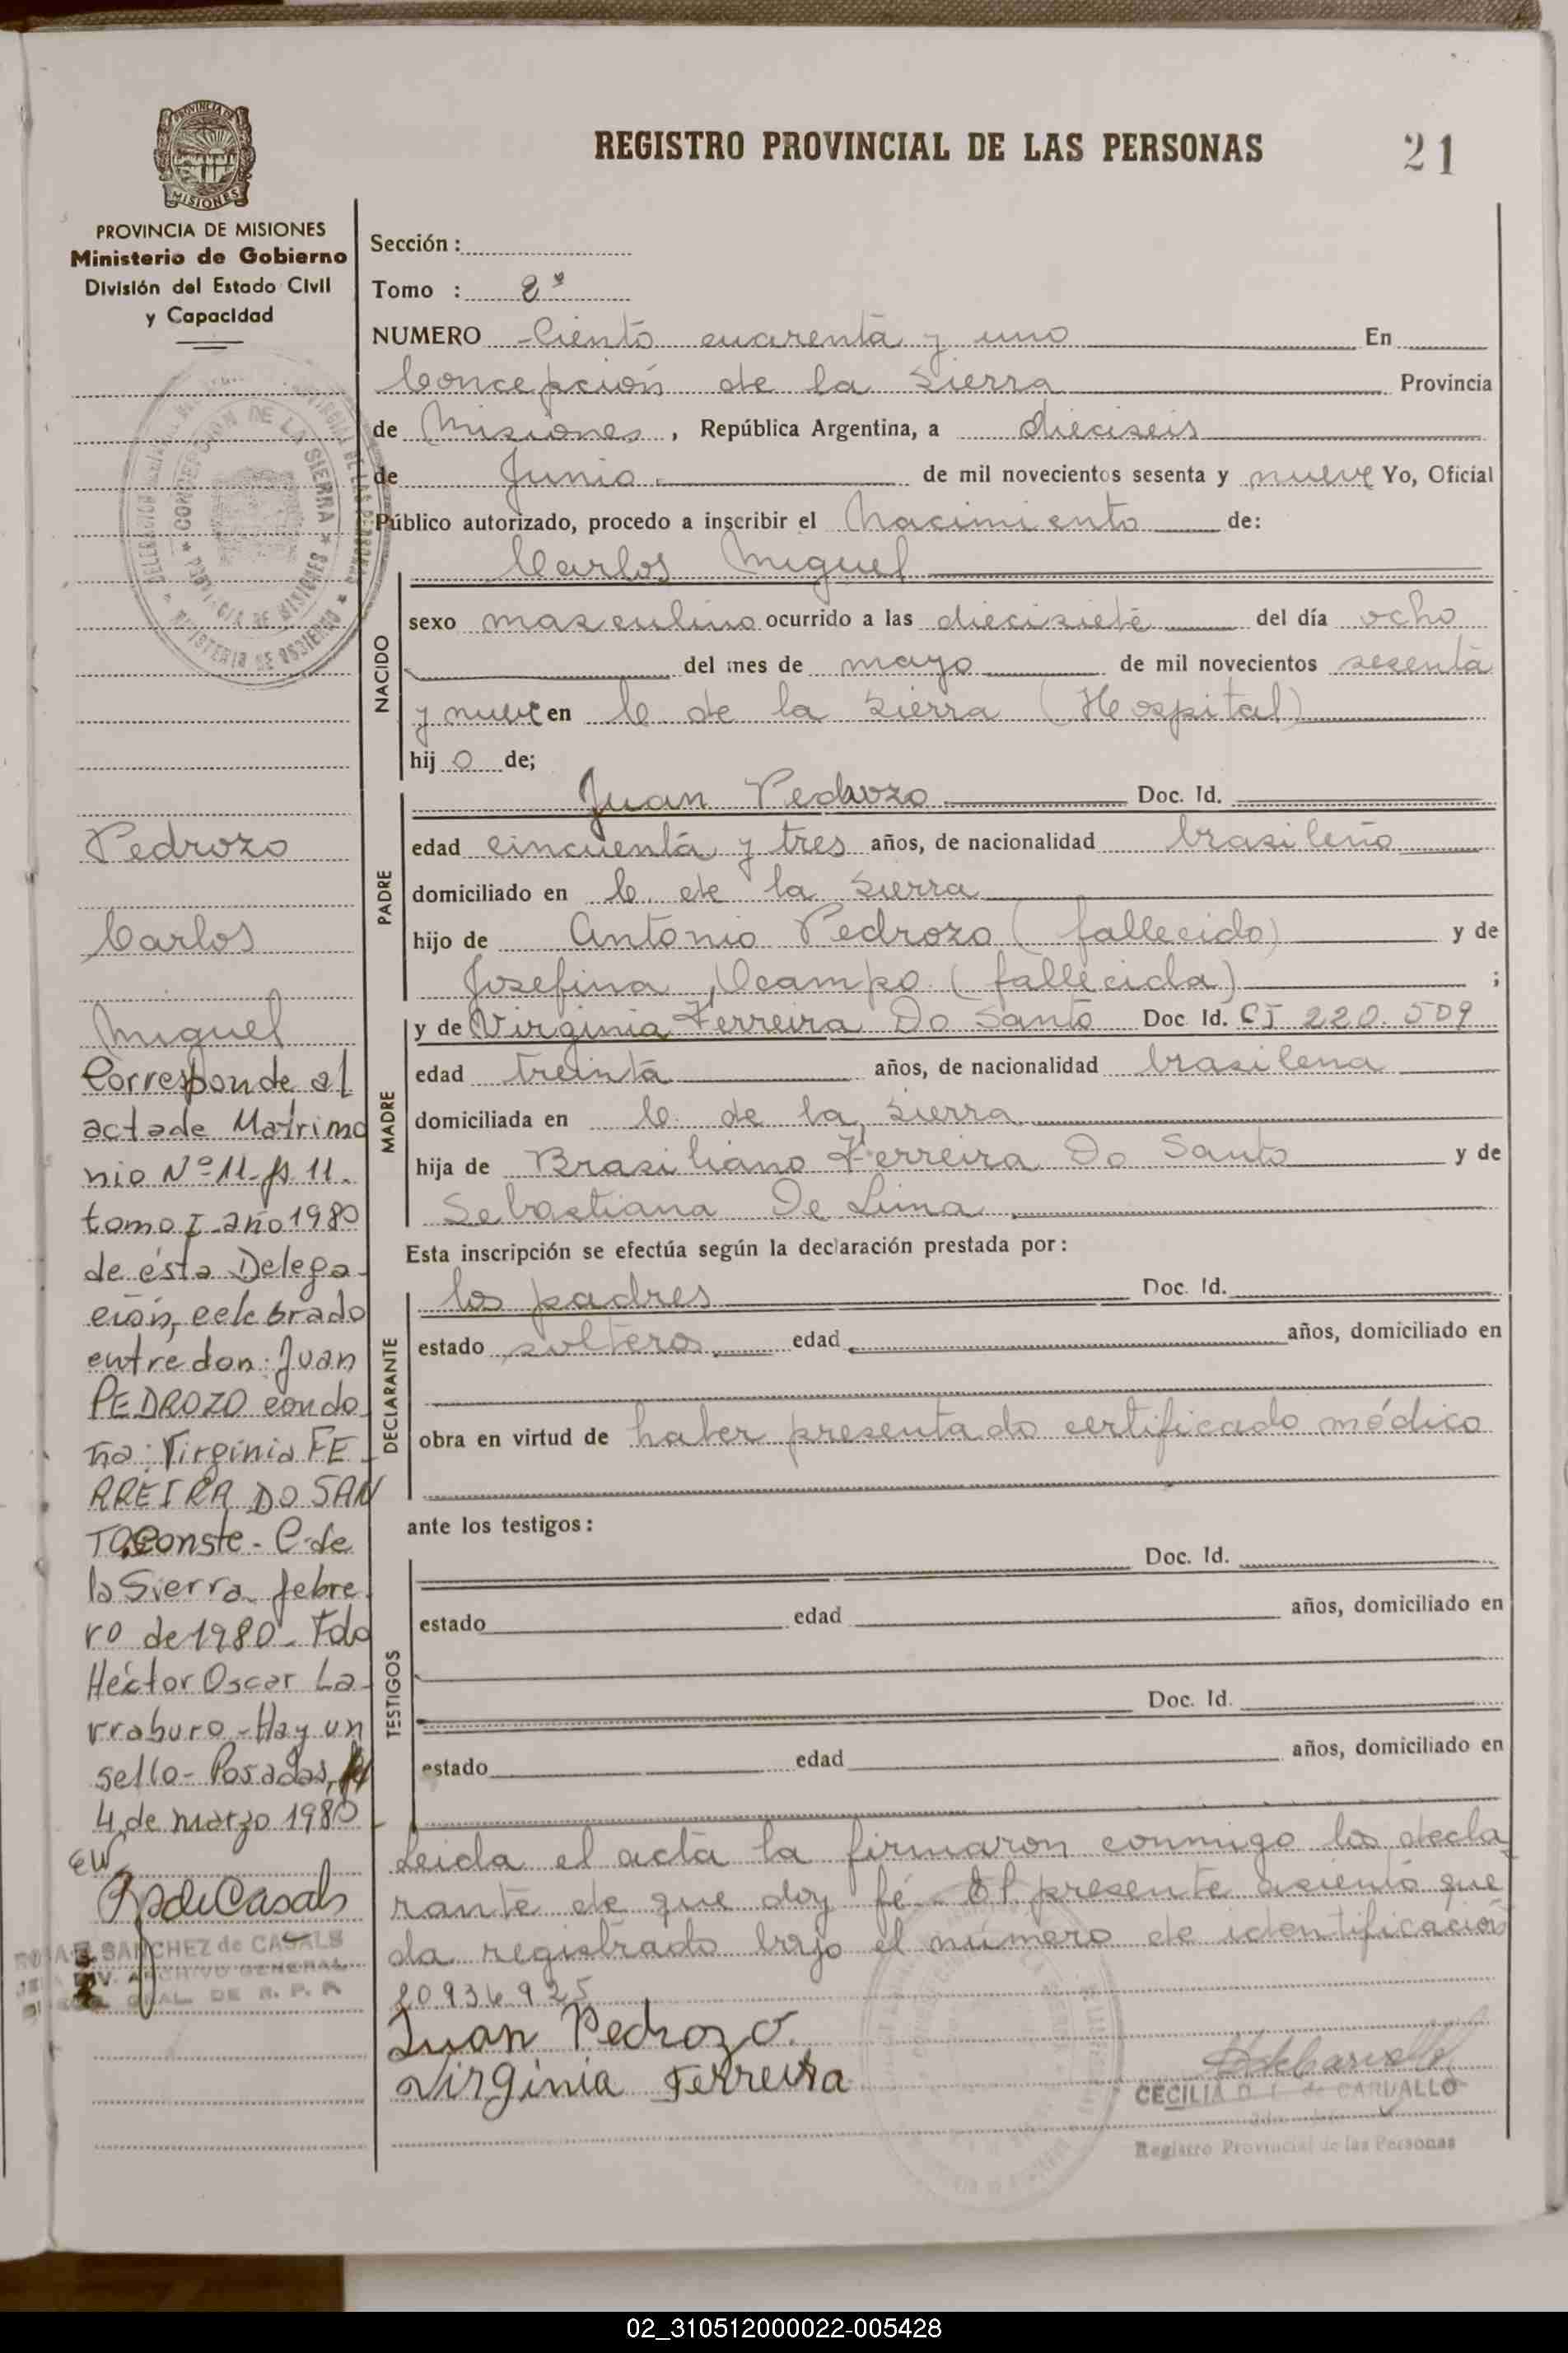 REGISTRO PROVINCIAL DE LAS PERSONAS
21
PROVINCIA DE MISIONES
Ministerio de Gobierno
División del Estado Civil
y Capacidad
Sección :
Tomo : 2º
NUMERO Ciento cuarenta y uno En
Concepción de la Sierra Provincia
de Misiones, República Argentina, a dieciseis
de Junio de mil novecientos sesenta y nueve Yo, Oficial
Público autorizado, procedo a inscribir el Nacimiento de:
Carlos Miguel
NACIDO
sexo masculino ocurrido a las diecisiete del día ocho
del mes de mayo de mil novecientos sesenta
y nueve en C de la Sierra (Hospital)
hij o de;
PADRE
Juan Pedrozo Doc. Id.
edad cincuenta y tres años, de nacionalidad brasileño
domiciliado en C. de la Sierra
hijo de Antonio Pedrozo (fallecido) y de
Josefina Ocampo (fallecida) ;
MADRE
y de Virginia Ferreira Do Santo Doc. Id. CI 220.509
edad treinta años, de nacionalidad brasilena
domiciliada en C. de la Sierra
hija de Brasiliano Ferreira Do Santo y de
Sebastiana De Lima
Esta inscripción se efectúa según la declaración prestada por:
DECLARANTE
los padres Doc. Id.
estado solteros edad años, domiciliado en
obra en virtud de haber presentado certificado médico
ante los testigos:
TESTIGOS
Doc. Id.
estado edad años, domiciliado en
Doc. Id.
estado edad años, domiciliado en
Leida el acta la firmaron conmigo los decla
rante de que doy fé. El presente asiento que
da registrado bajo el número de identificación
20936925
Juan Pedrozo.
Virginia Ferreira
CECILIA de CARVALLO
Registro Provincial de las Personas
Pedrozo
Carlos
Miguel
Corresponde al
acta de Matrimo
nio Nº 11-fs 11.
tomo I año 1980
de ésta Delega
ción, celebrado
entre don: Juan
PEDROZO con do
ña: Virginia FE
RREIRA DO SAN
TO. Conste - C. de
la Sierra, febre
ro de 1980 - Fdo
Héctor Oscar La
rraburo - Hay un
sello - Posadas,
4 de marzo 1980
EW
SANCHEZ de CASALS
DIV. ARCHIVO GENERAL
GRAL. DE R. P. P.
CONCEPCION DE LA SIERRA
PROVINCIA DE MISIONES
MINISTERIO DE GOBIERNO
02_310512000022-005428